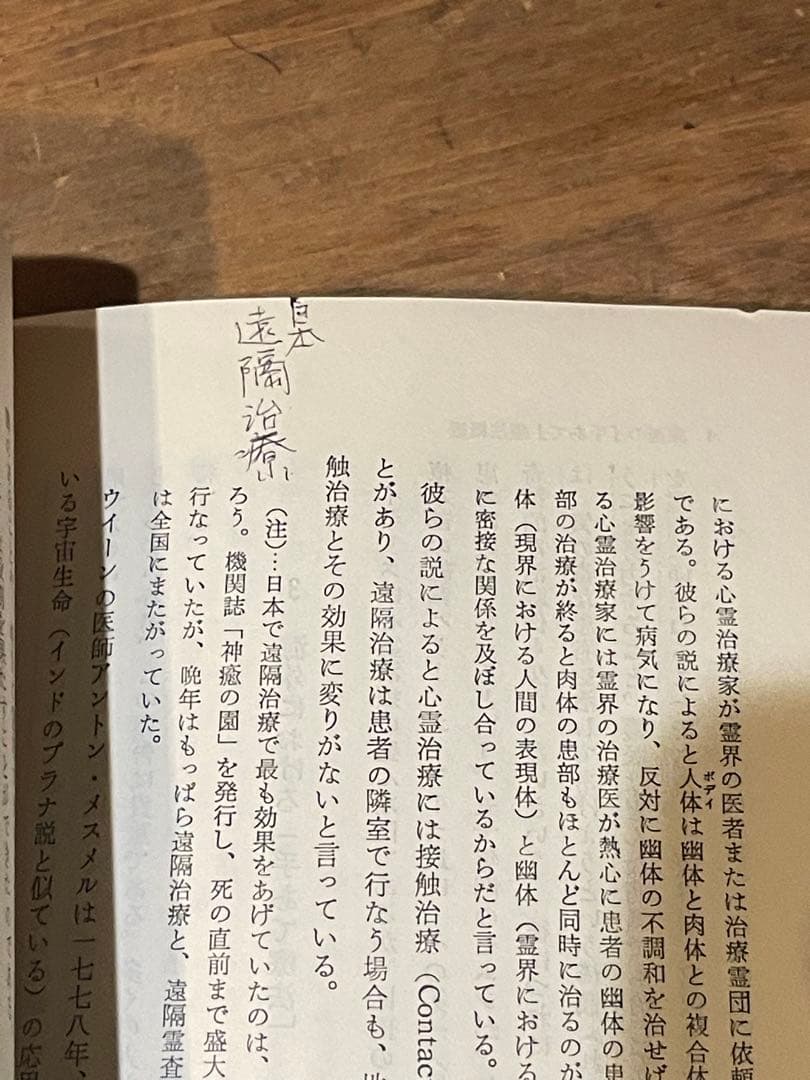 日本
遠隔治療
における心霊治療家が霊界の医者または治療霊団に依頼
である。彼らの説によると人体は幽体と肉体との複合体
ボディ
影響をうけて病気になり、反対に幽体の不調和を治せば
る心霊治療家には霊界の治療医が熱心に患者の幽体の患
部の治療が終ると肉体の患部もほとんど同時に治るのが
体（現界における人間の表現体）と幽体（霊界における
に密接な関係を及ぼし合っているからだと言っている。
彼らの説によると心霊治療には接触治療（Contac
とがあり、遠隔治療は患者の隣室で行なう場合も、地
触治療とその効果に変りがないと言っている。
（注）…日本で遠隔治療で最も効果をあげていたのは、
ろう。機関誌「神癒の園」を発行し、死の直前まで盛大
行なっていたが、晩年はもっぱら遠隔治療と、遠隔霊査
は全国にまたがっていた。
ウイーンの医師アントン・メスメルは一七七八年、
いる宇宙生命（インドのプラナ説と似ている）の応用